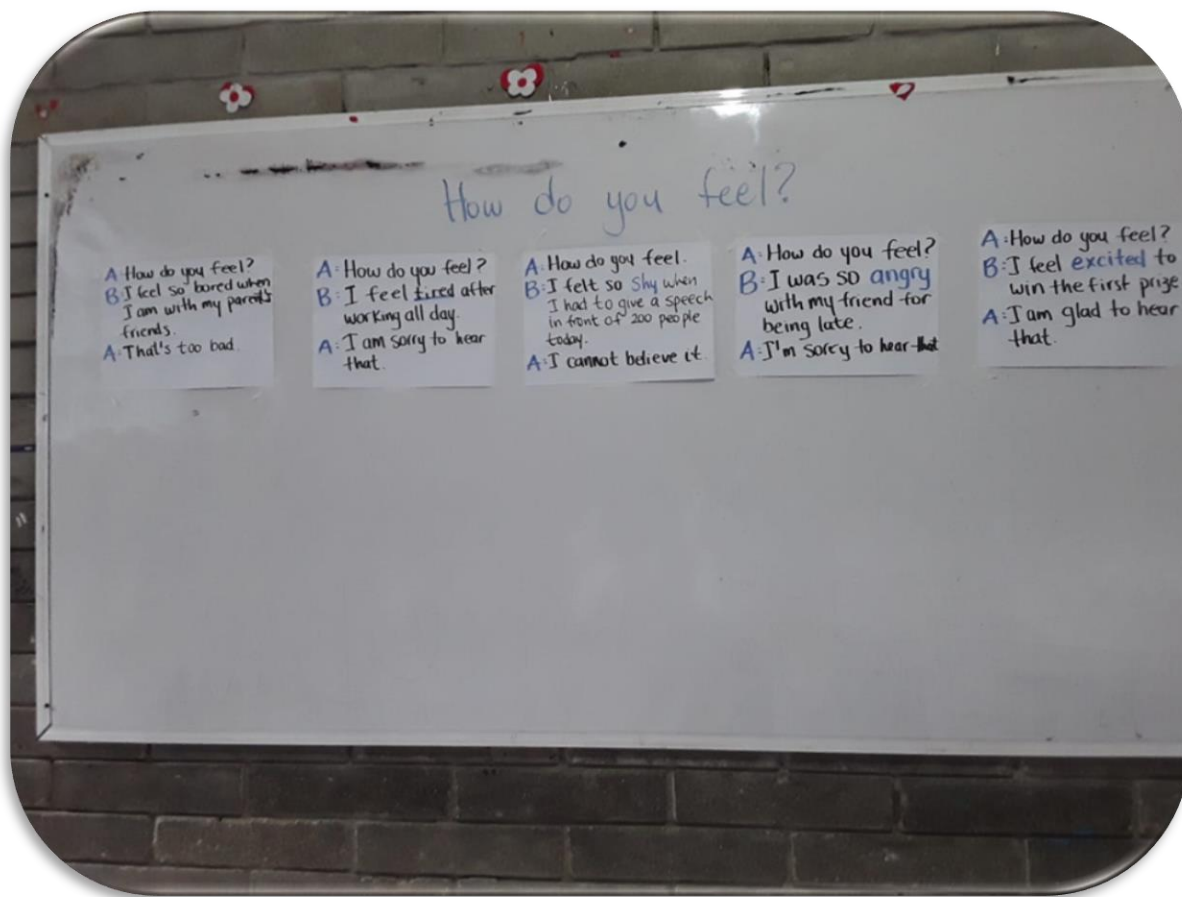 How do you feel?
A: How do you feel?
B: I feel so bored when
I am with my parent's
friends.
A: That's too bad.
A: How do you feel?
B: I feel tired after
working all day.
A: I am sorry to hear
that.
A: How do you feel.
B: I felt so shy when
I had to give a speech
in front of 200 people
today.
A: I cannot believe it.
A: How do you feel?
B: I was so angry
with my friend for
being late.
A: I'm sorry to hear that
A: How do you feel?
B: I feel excited to
win the first prize
A: I am glad to hear
that.